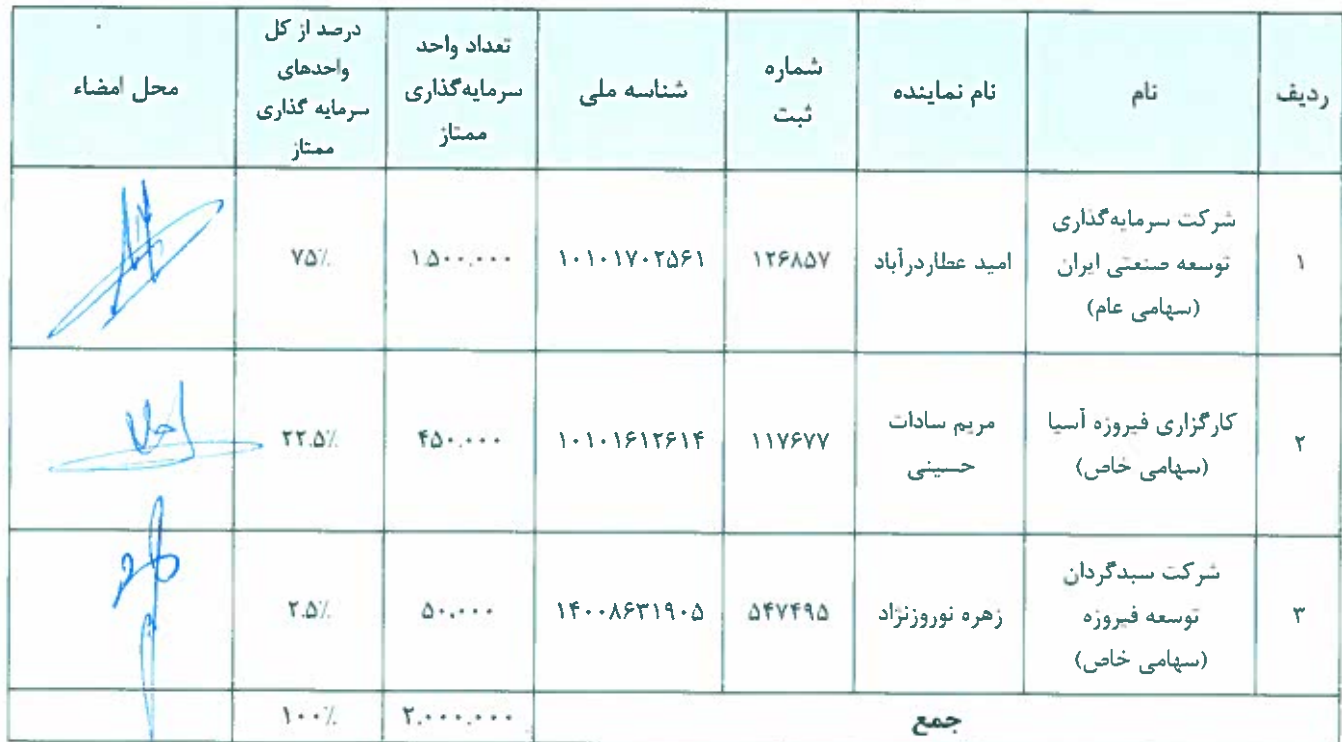 ردیف
نام
نام نماینده
شماره
ثبت
شناسه ملی
تعداد واحد
سرمایه‌گذاری
ممتاز
درصد از کل
واحدهای
سرمایه گذاری
ممتاز
محل امضاء
۱
شرکت سرمایه‌گذاری
توسعه صنعتی ایران
(سهامی عام)
امید عطاردرآباد
۱۲۶۸۵۷
۱۰۱۰۱۷۰۲۵۶۱
۱.۵۰۰.۰۰۰
۷۵٪
۲
کارگزاری فیروزه آسیا
(سهامی خاص)
مریم سادات
حسینی
۱۱۷۶۷۷
۱۰۱۰۱۶۱۲۶۱۴
۴۵۰.۰۰۰
۲۲.۵٪
۳
شرکت سبدگردان
توسعه فیروزه
(سهامی خاص)
زهره نوروزنژاد
۵۴۷۴۹۵
۱۴۰۰۸۶۳۱۹۰۵
۵۰.۰۰۰
۲.۵٪
جمع
۲.۰۰۰.۰۰۰
۱۰۰٪